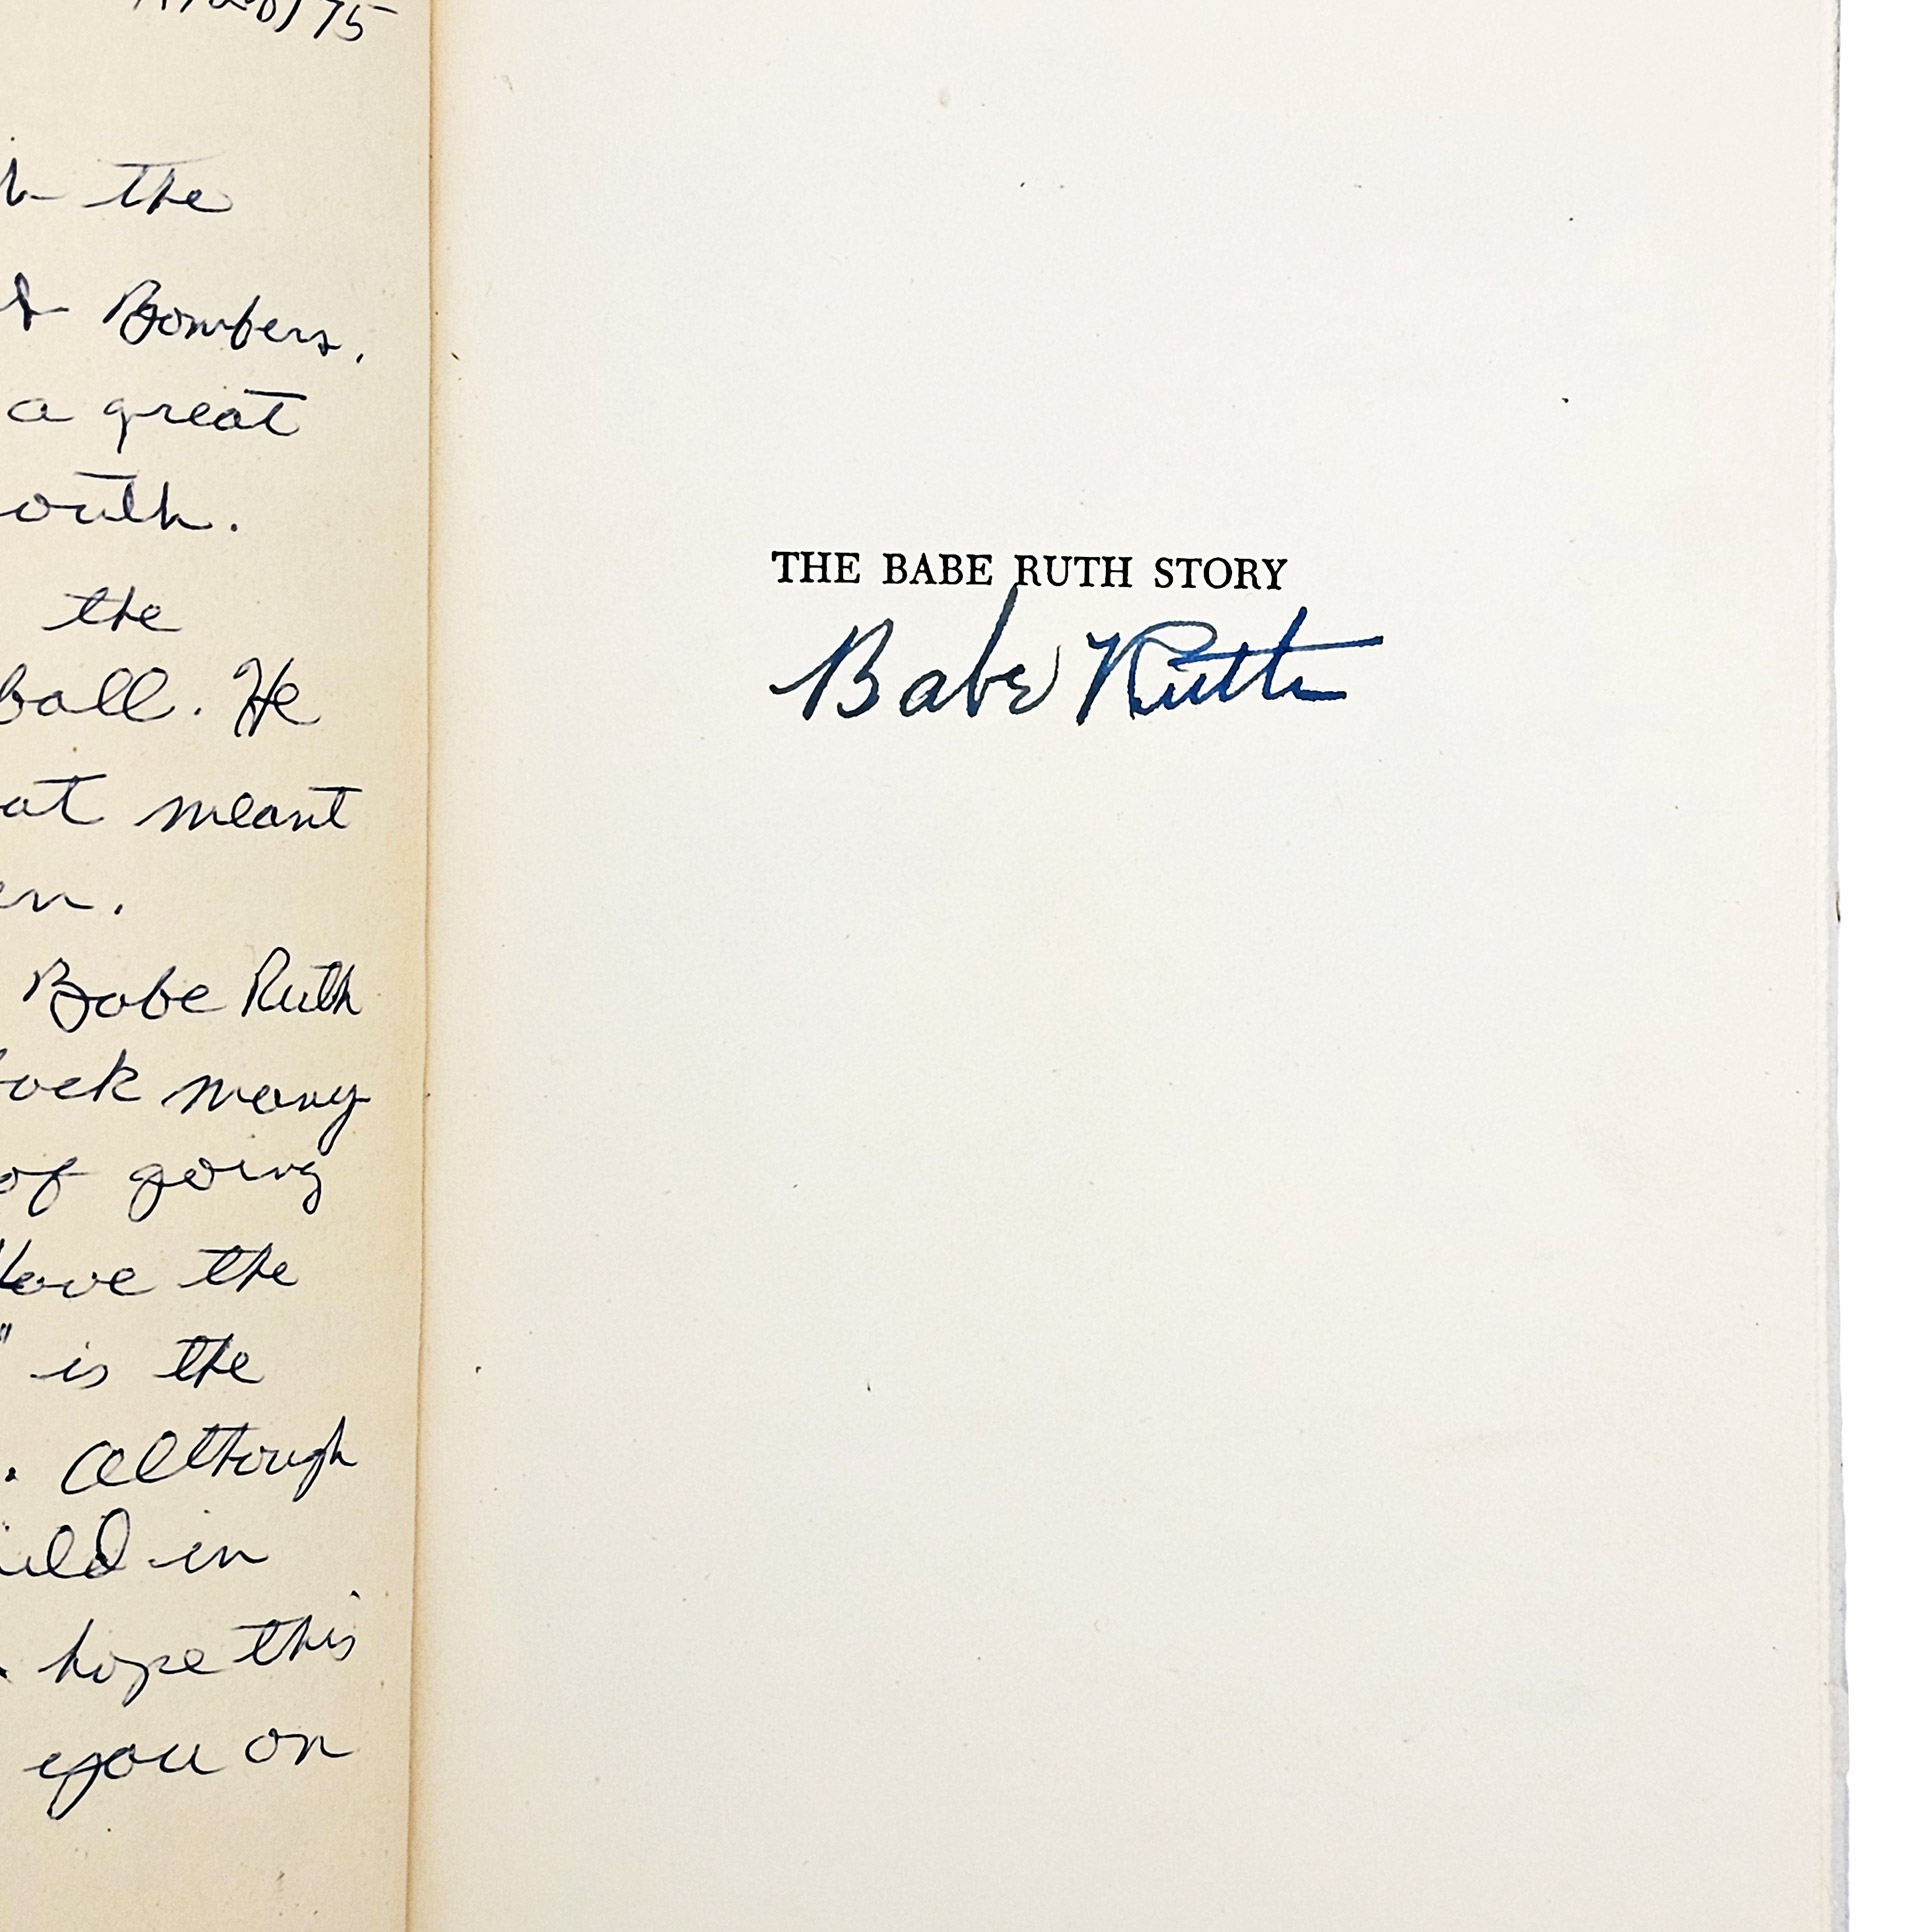 75
the
Bombers.
a great
outh.
the
ball. He
at meant
en.
Babe Ruth
back many
of going
Love the
" is the
. Although
ild in
hope this
you on
THE BABE RUTH STORY
Babe Ruth